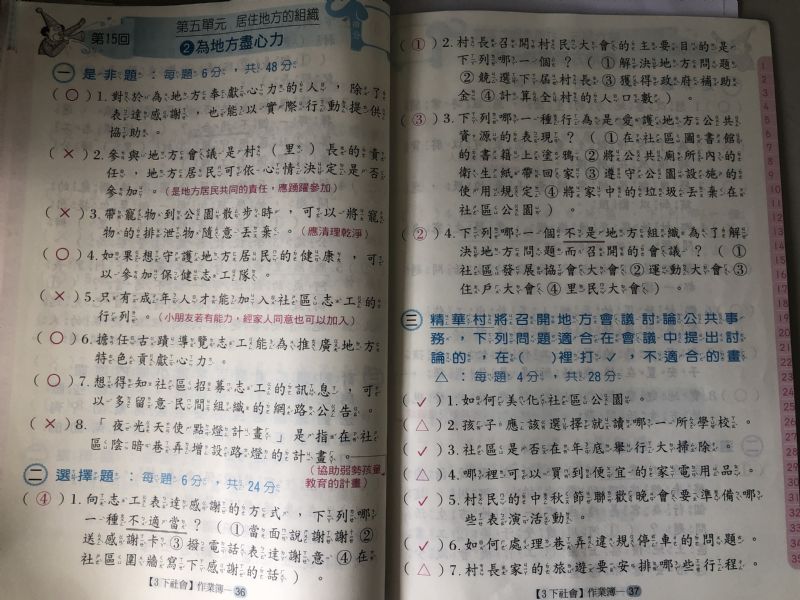 第15回
第五單元 居住地方的組織
❷為地方盡心力
一 是非題：每題6分，共48分
（○）1.對於為地方奉獻心力的人，除了
表達感謝，也能以實際行動提供
協助。
（×）2.參與地方會議是村（里）長的責
任，地方居民可依心情決定是否
參加。（是地方居民共同的責任，應踴躍參加）
（×）3.帶寵物到公園散步時，可以將寵
物的排泄物隨意丟棄。（應清理乾淨）
（○）4.如果想守護地方居民的健康，可
以參加保健志工隊。
（×）5.只有成年人才能加入社區志工的
行列。（小朋友若有能力，經家人同意也可以加入）
（○）6.擔任古蹟導覽志工能為推廣地方
特色貢獻心力。
（○）7.想得知社區招募志工的訊息，可
以多留意民間組織的網路公告。
（×）8.「夜光天使點燈計畫」是指在社
區陰暗巷弄增設路燈的計畫。
（協助弱勢孩童
教育的計畫）
二 選擇題：每題6分，共24分
（④）1.向志工表達感謝的方式，下列哪
一種不適當？（①當面說謝謝②
送感謝卡③撥電話表達謝意④在
社區圍牆寫下感謝的話）。
【3下社會】作業簿—36
（①）2.村長召開村民大會的主要目的是
下列哪一個？（①解決地方問題
②競選下屆村長③獲得政府補助
金④計算全村的人口數）。
（③）3.下列哪一種行為是愛護地方公共
資源的表現？（①在社區圖書館
的書籍上塗鴉②將公共廁所內的
衛生紙帶回家③遵守公園設施的
使用規定④將家中的垃圾丟棄在
社區公園）。
（②）4.下列哪一個不是地方組織為了解
決地方問題而召開的會議？（①
社區發展協會大會②運動大會③
住戶大會④里民大會）。
三 精華村將召開地方會議討論公共事
務，下列問題適合在會議中提出討
論的，在（ ）裡打✓，不適合的畫
△：每題4分，共28分
（✓）1.如何美化社區公園。
（△）2.孩子應該選擇就讀哪一所學校。
（✓）3.社區是否在年底舉行大掃除。
（△）4.哪裡可以買到便宜的家電用品。
（✓）5.村民的中秋節聯歡晚會要準備哪
些表演活動。
（✓）6.如何處理巷弄違規停車的問題。
（△）7.村長家的旅遊要安排哪些行程。
【3下社會】作業簿—37